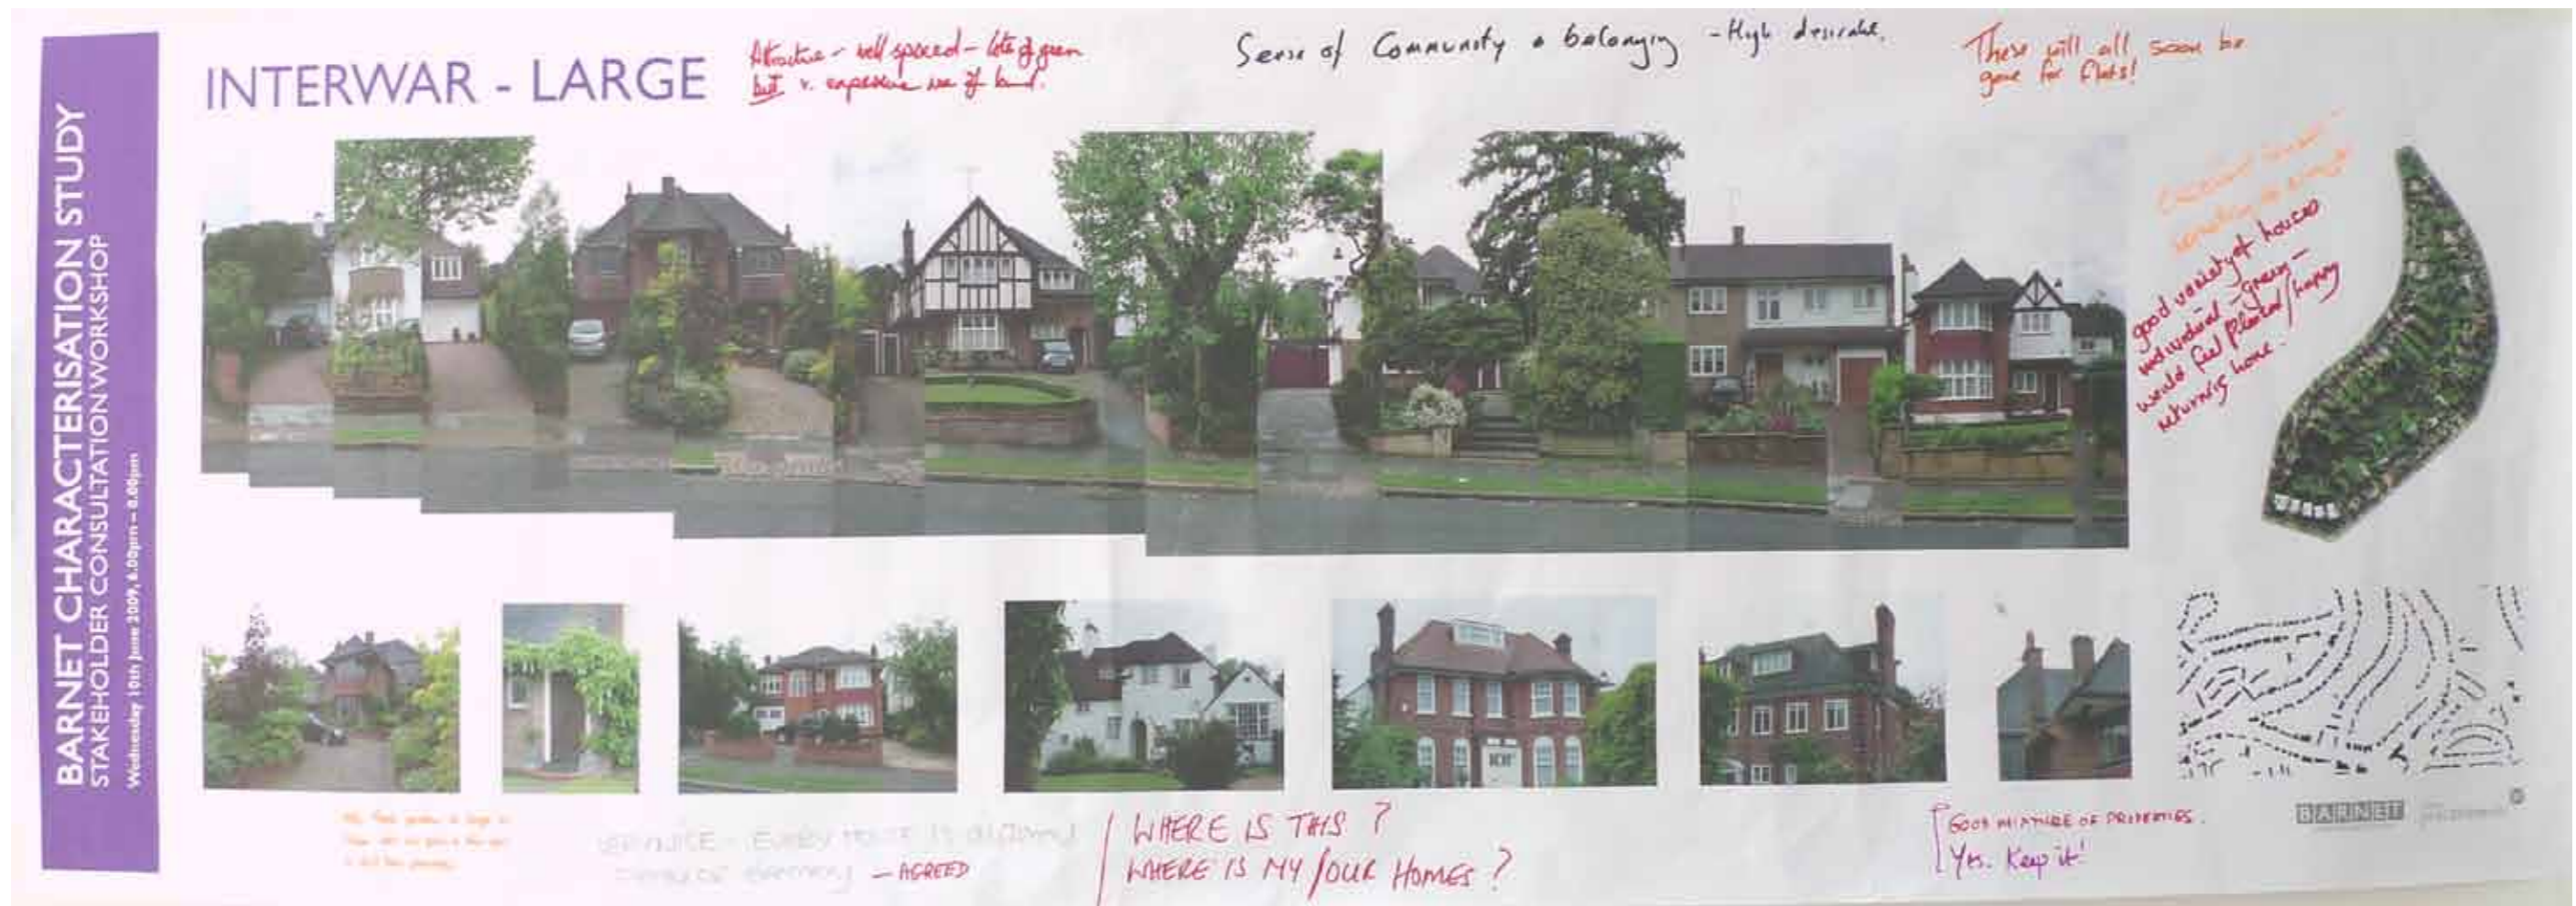 BARNET CHARACTERISATION STUDY
STAKEHOLDER CONSULTATION WORKSHOP
Wednesday 10th June 2009, 6.00pm – 8.00pm
INTERWAR - LARGE
Attractive - well spaced - lots of green
but v. expensive use of land.
Sense of Community & belonging - High desirable.
These will all soon be
gone for flats!
good variety of houses
individual - green -
would feel pleased/happy
returning home.
EVERY HOUSE IS DIFFERENT
- AGREED
WHERE IS THIS ?
WHERE IS MY / OUR HOMES ?
GOOD MIXTURE OF PROPERTIES.
Yes. Keep it!
BARNET